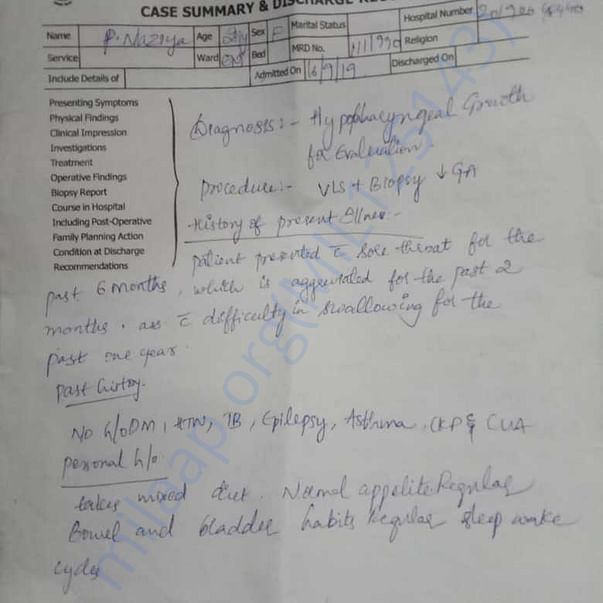 CASE SUMMARY & DISCHARGE
Name P. Naziya Age Sex F Marital Status Hospital Number
Service Ward ENT Bed MRD No. Religion
Include Details of Admitted On 16/9/19 Discharged On
Presenting Symptoms
Physical Findings
Clinical Impression
Investigations
Treatment
Operative Findings
Biopsy Report
Course in Hospital
Including Post-Operative
Family Planning Action
Condition at Discharge
Recommendations
Diagnosis:- Hypopharyngeal Growth
for Evaluation.
Procedure:- VLS + Biopsy ↓ GA
History of present Illness:-
patient presented c̄ sore throat for the
past 6 months, which is aggravated for the past 2
months. ass c̄ difficulty in swallowing for the
past one year.
Past history.
No h/o DM, HTN, TB, Epilepsy, Asthma, CVA
personal h/o
takes mixed diet. Normal appetite Regular
Bowel and bladder habits Regular sleep wake
cycles
milaap.org